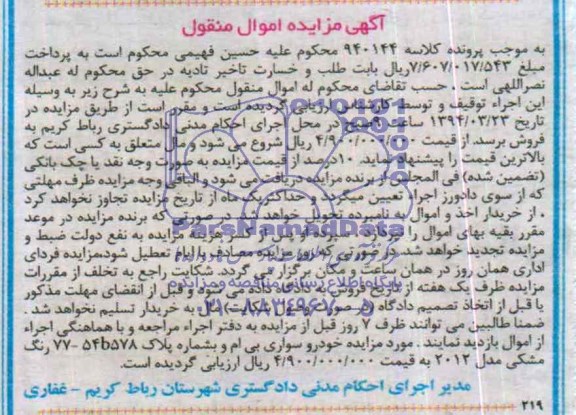 آگهی مزایده اموال منقول
به موجب پرونده کلاسه ۹۴۰۱۴۴ محکوم علیه حسین فهیمی محکوم است به پرداخت
مبلغ ۷/۶۰۷/۰۱۷/۵۴۳ریال بابت طلب و خسارت تاخیر تادیه در حق محکوم له عبداله
نصراللهی است . حسب تقاضای محکوم له اموال منقول محکوم علیه به شرح زیر به وسیله
این اجراء توقیف و توسط کارشناس ارزیابی گردیده است و مقرر است از طریق مزایده در
تاریخ ۱۳۹۴/۰۳/۲۳ ساعت ۹صبح در محل اجرای احکام مدنی دادگستری رباط کریم به
فروش برسد. از قیمت ۴/۹۰۰/۰۰۰/۰۰۰ ریال شروع می شود و مال متعلق به کسی است که
بالاترین قیمت را پیشنهاد نماید. ۱۰درصد از قیمت مزایده به صورت وجه نقد یا چک بانکی
(تضمین شده) فی المجلس از برنده مزایده دریافت می شود و الباقی وجه مزایده ظرف مهلتی
که از سوی دادورز اجراء تعیین میگردد و حداکثر یک ماه از تاریخ مزایده تجاوز نخواهد کرد
. از خریدار اخذ و اموال به نامبرده تحویل خواهد شد. در صورتی که برنده مزایده در موعد
مقرر بقیه بهای اموال را او پس از کسر هزینه مزایده به نفع دولت ضبط و
مزایده تجدید خواهد شد. در صورتی که روز مزایده مصادف با ایام تعطیل شود،مزایده فردای
اداری همان روز در همان ساعت و مکان برگزار می گردد. شکایت راجع به تخلف از مقررات
مزایده ظرف یک هفته از تاریخ فروش به دادگاه داده می شود و قبل از انقضای مهلت مذکور
یا قبل از اتخاذ تصمیم دادگاه به خریدار تسلیم نخواهد شد .
ضمنا طالبین می توانند ظرف ۷ روز قبل از مزایده به دفتر اجراء مراجعه و با هماهنگی اجراء
از اموال بازدید نمایند . مورد مزایده خودرو سواری بی ام و بشماره پلاک ۵۴b۵۷۸ -۷۷ رنگ
مشکی مدل ۲۰۱۲ به قیمت ۴/۹۰۰/۰۰۰/۰۰۰ ریال ارزیابی گردیده است.
مدیر اجرای احکام مدنی دادگستری شهرستان رباط کریم - غفاری
۲۱۹
ParsNamadData
پایگاه اطلاع رسانی مناقصه و مزایده
۰۲۱-۸۸۳۴۹۶۷۰